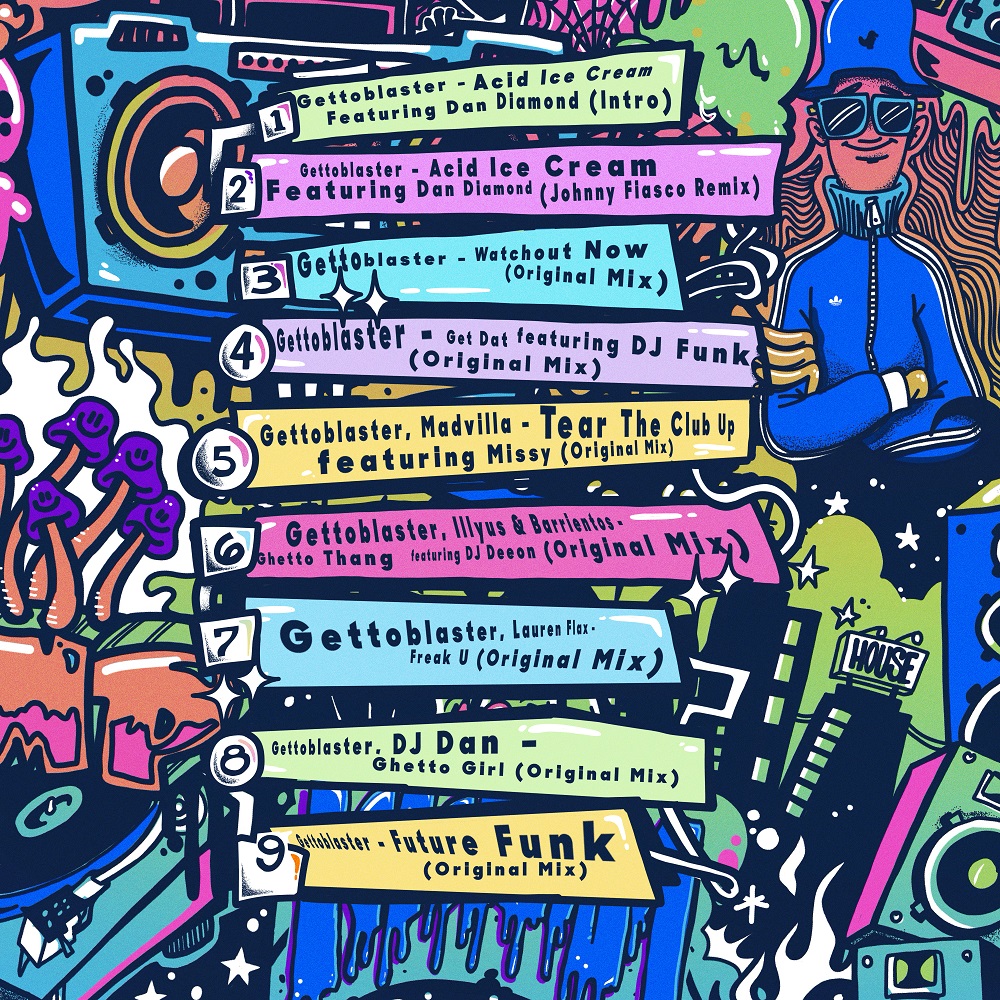 1
Gettoblaster - Acid Ice Cream
Featuring Dan Diamond (Intro)
2
Gettoblaster - Acid Ice Cream
Featuring Dan Diamond (Johnny Fiasco Remix)
3
Gettoblaster - Watchout Now
(Original Mix)
4
Gettoblaster - Get Dat featuring DJ Funk
(Original Mix)
5
Gettoblaster, Madvilla - Tear The Club Up
featuring Missy (Original Mix)
6
Gettoblaster, Illyus & Barrientos -
Ghetto Thang featuring DJ Deeon (Original Mix)
7
Gettoblaster, Lauren Flax -
Freak U (Original Mix)
HOUSE
8
Gettoblaster, DJ Dan -
Ghetto Girl (Original Mix)
9
Gettoblaster - Future Funk
(Original Mix)